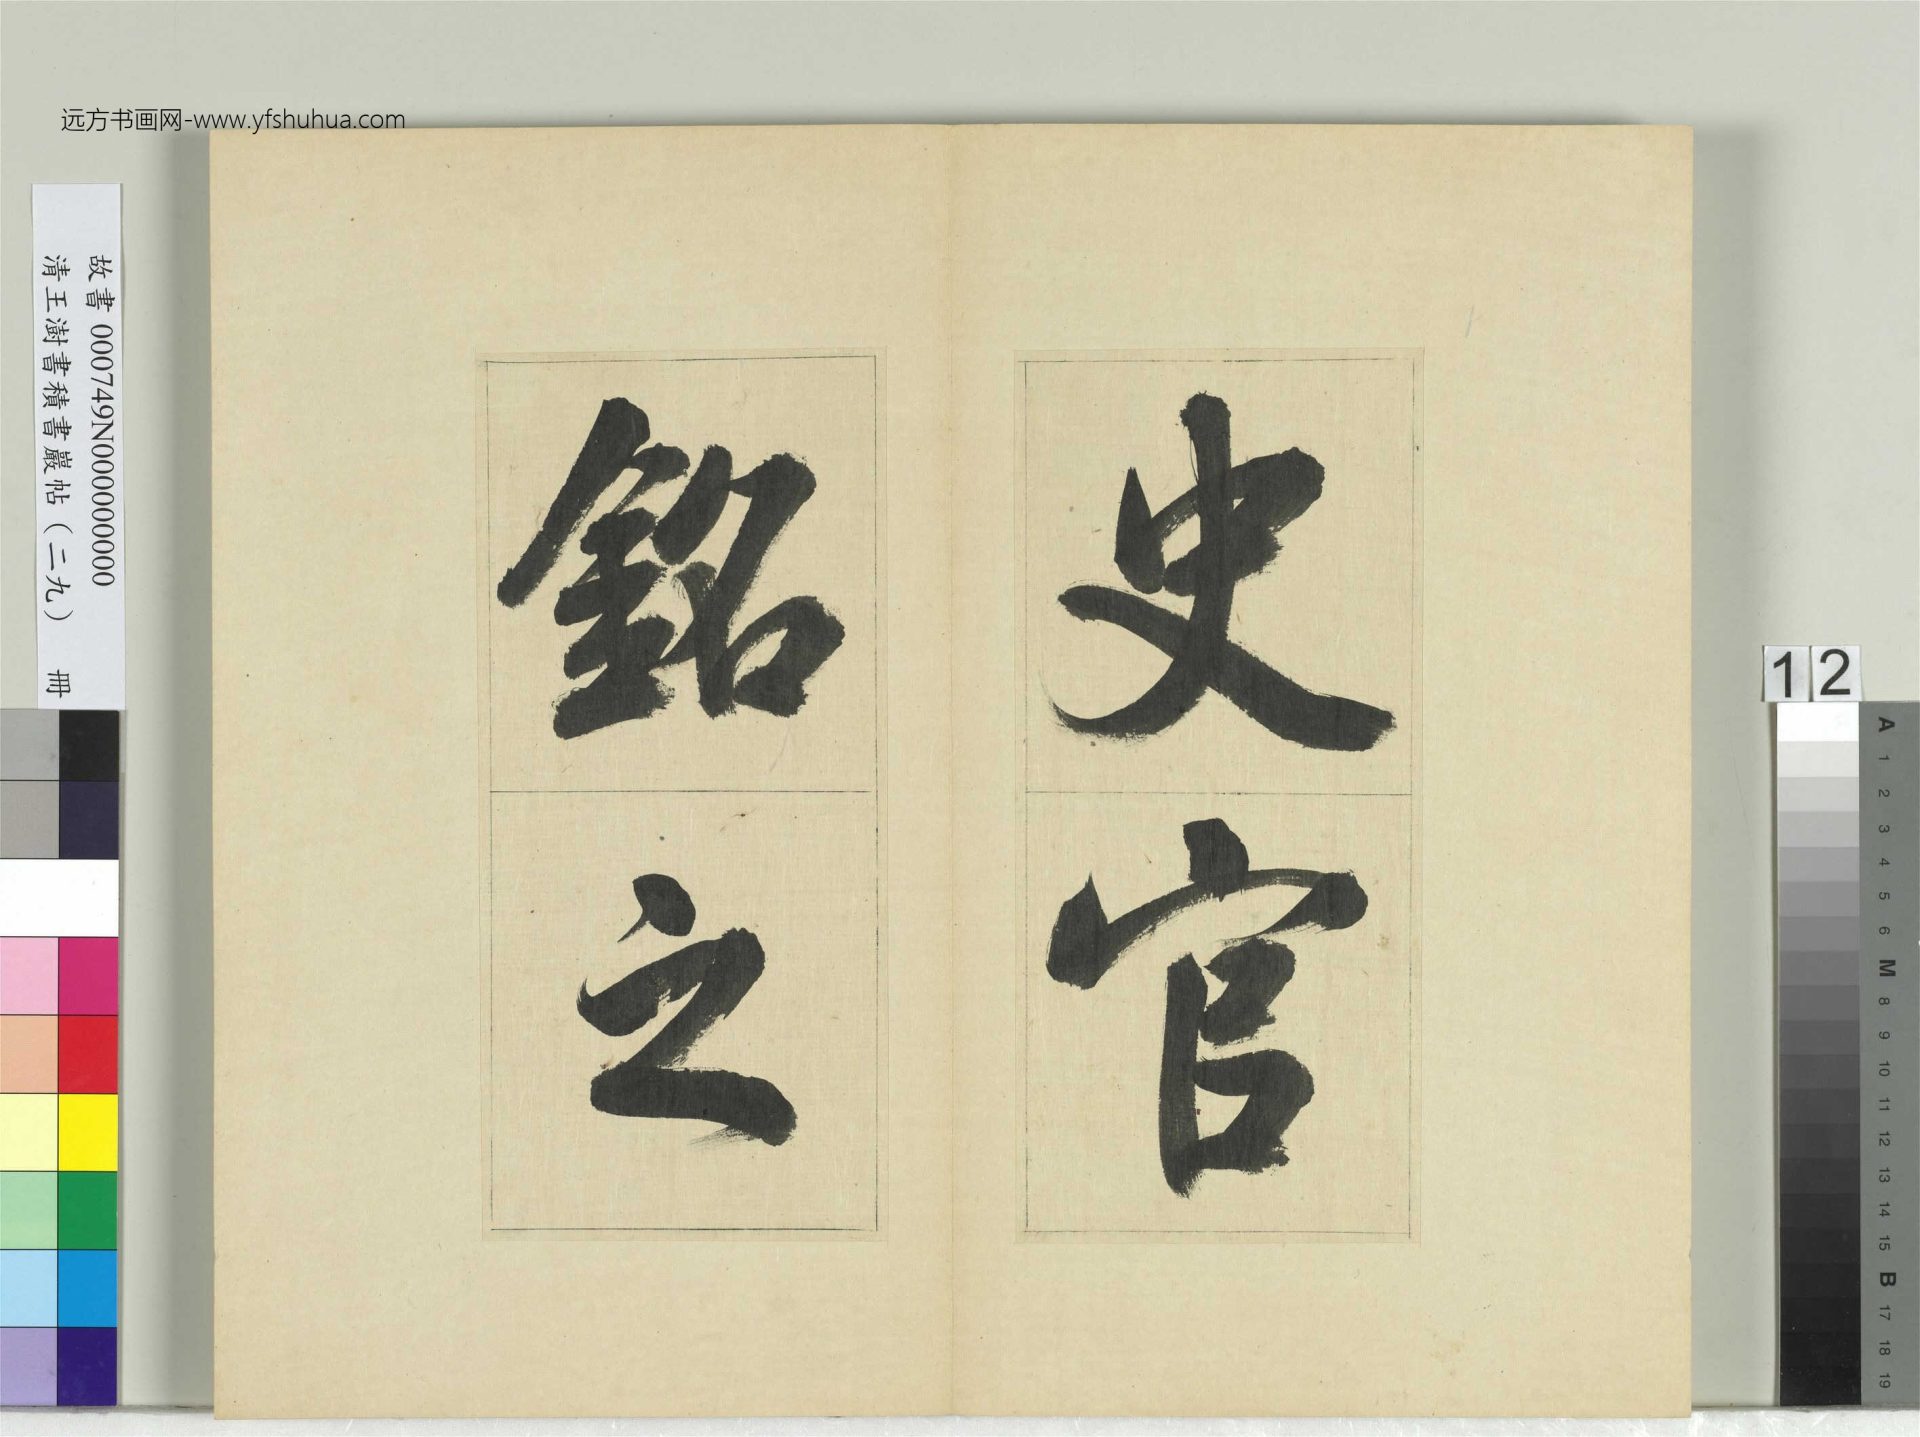 远方书画网-www.yfshuhua.com
故書 000749N000000000
清王澍書積書巖帖（二九） 冊
史官
銘之
12
A
1
2
3
4
5
6
M
8
9
10
11
12
13
14
15
B
17
18
19